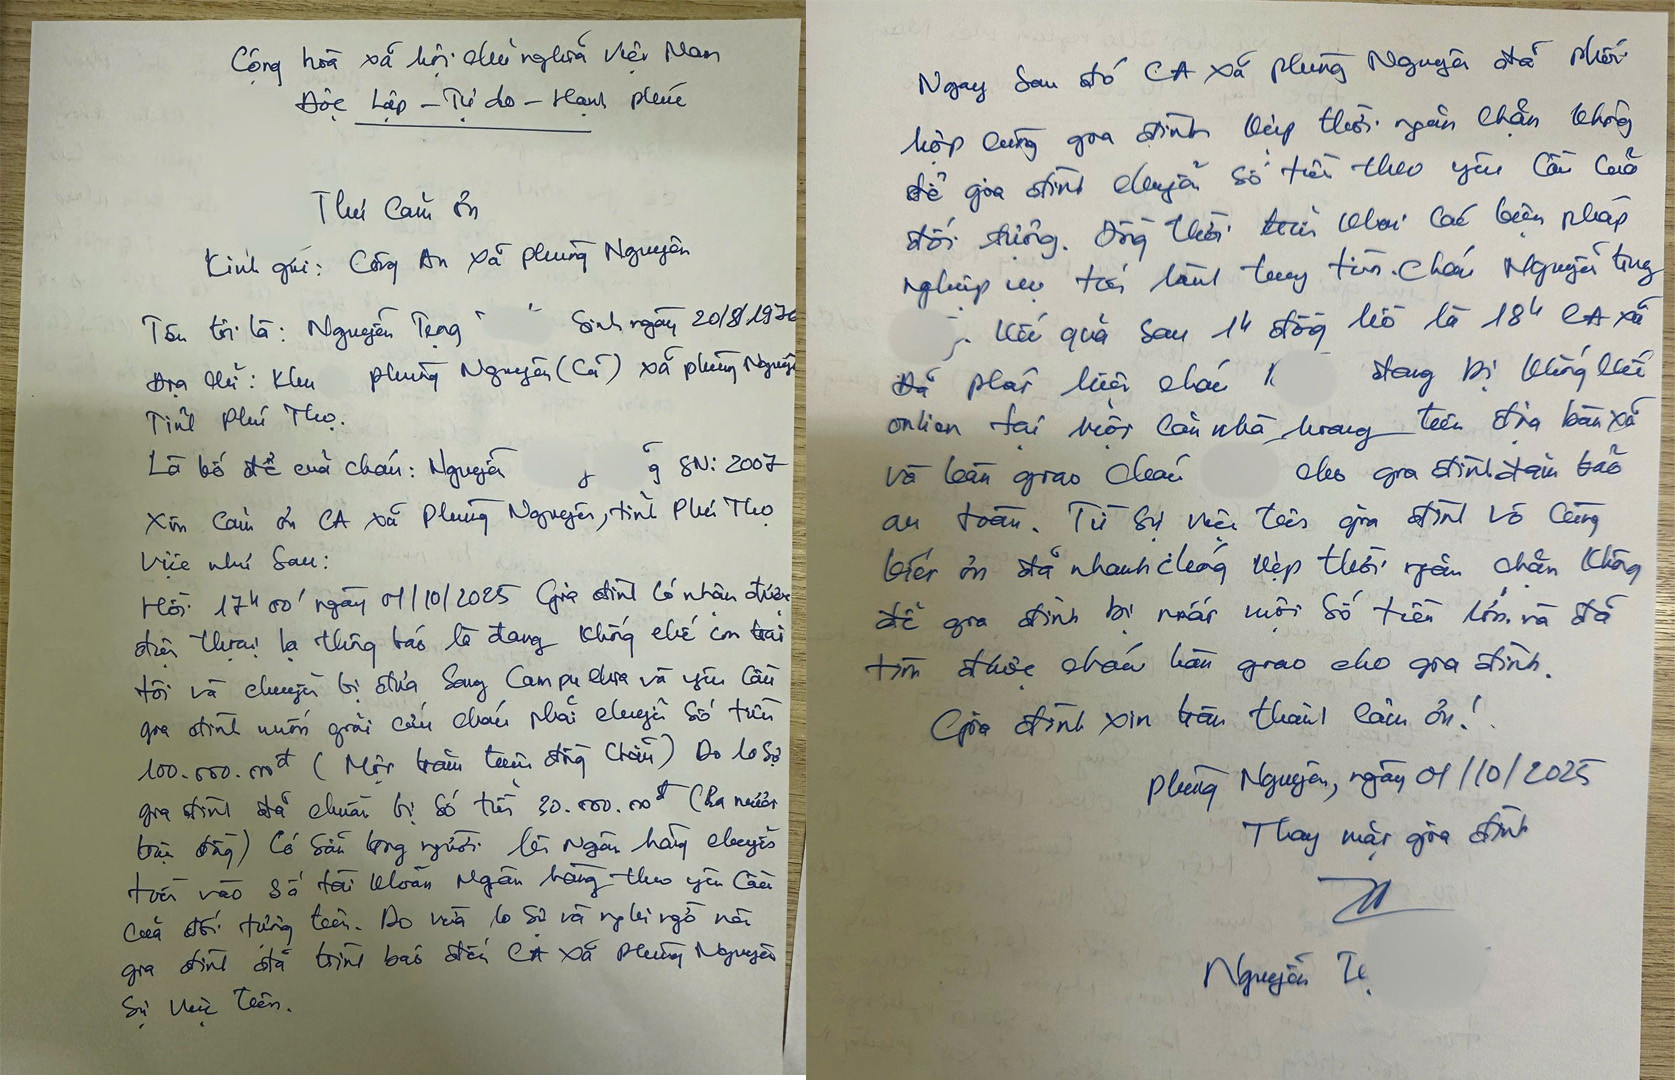 Cộng hoà xã hội chủ nghĩa Việt Nam
Độc Lập - Tự do - Hạnh phúc
Thư cảm ơn
Kính gửi: Công An xã Phùng Nguyên
Tên tôi là: Nguyễn Trọng Sinh ngày 20/8/1976
Địa chỉ: Khu Phùng Nguyên (Cũ) xã Phùng Nguyên
Tỉnh Phú Thọ.
Là bố đẻ của cháu: Nguyễn g SN: 2007
Xin cảm ơn CA xã Phùng Nguyên, tỉnh Phú Thọ
Việc như sau:
Hồi 17h00' ngày 01/10/2025 Gia đình có nhận được
điện thoại lạ thông báo là đang khống chế con trai
tôi và chuyển bị đưa sang Campuchia và yêu cầu
gia đình muốn giải cứu cháu phải chuyển số tiền
100.000.000đ (Một trăm triệu đồng chẵn) Do lo sợ
gia đình đã chuẩn bị số tiền 30.000.000đ (Ba mươi
triệu đồng) Có sẵn trong người lên Ngân hàng chuyển
tiền vào số tài khoản Ngân hàng theo yêu cầu
của đối tượng trên. Do vừa lo sợ và nghi ngờ nên
gia đình đã trình báo đến CA xã Phùng Nguyên
Sự việc trên.
Ngay sau đó CA xã Phùng Nguyên đã phối
hợp cùng gia đình kịp thời ngăn chặn không
để gia đình chuyển số tiền theo yêu cầu của
đối tượng. Đồng thời triển khai các biện pháp
nghiệp vụ tiến hành truy tìm cháu Nguyễn Trọng
. Kết quả sau 1h đồng hồ là 18h CA xã
Đã phát hiện cháu K đang bị khống chế
onlien tại một căn nhà hoang trên địa bàn xã
và bàn giao cháu cho gia đình đảm bảo
an toàn. Từ sự việc trên gia đình vô cùng
biết ơn đã nhanh chóng kịp thời ngăn chặn không
để gia đình bị mất một số tiền lớn và đã
tìm được cháu bàn giao cho gia đình.
Gia đình xin trân thành cảm ơn!
Phùng Nguyên, ngày 01/10/2025
Thay mặt gia đình
Nguyễn Tr